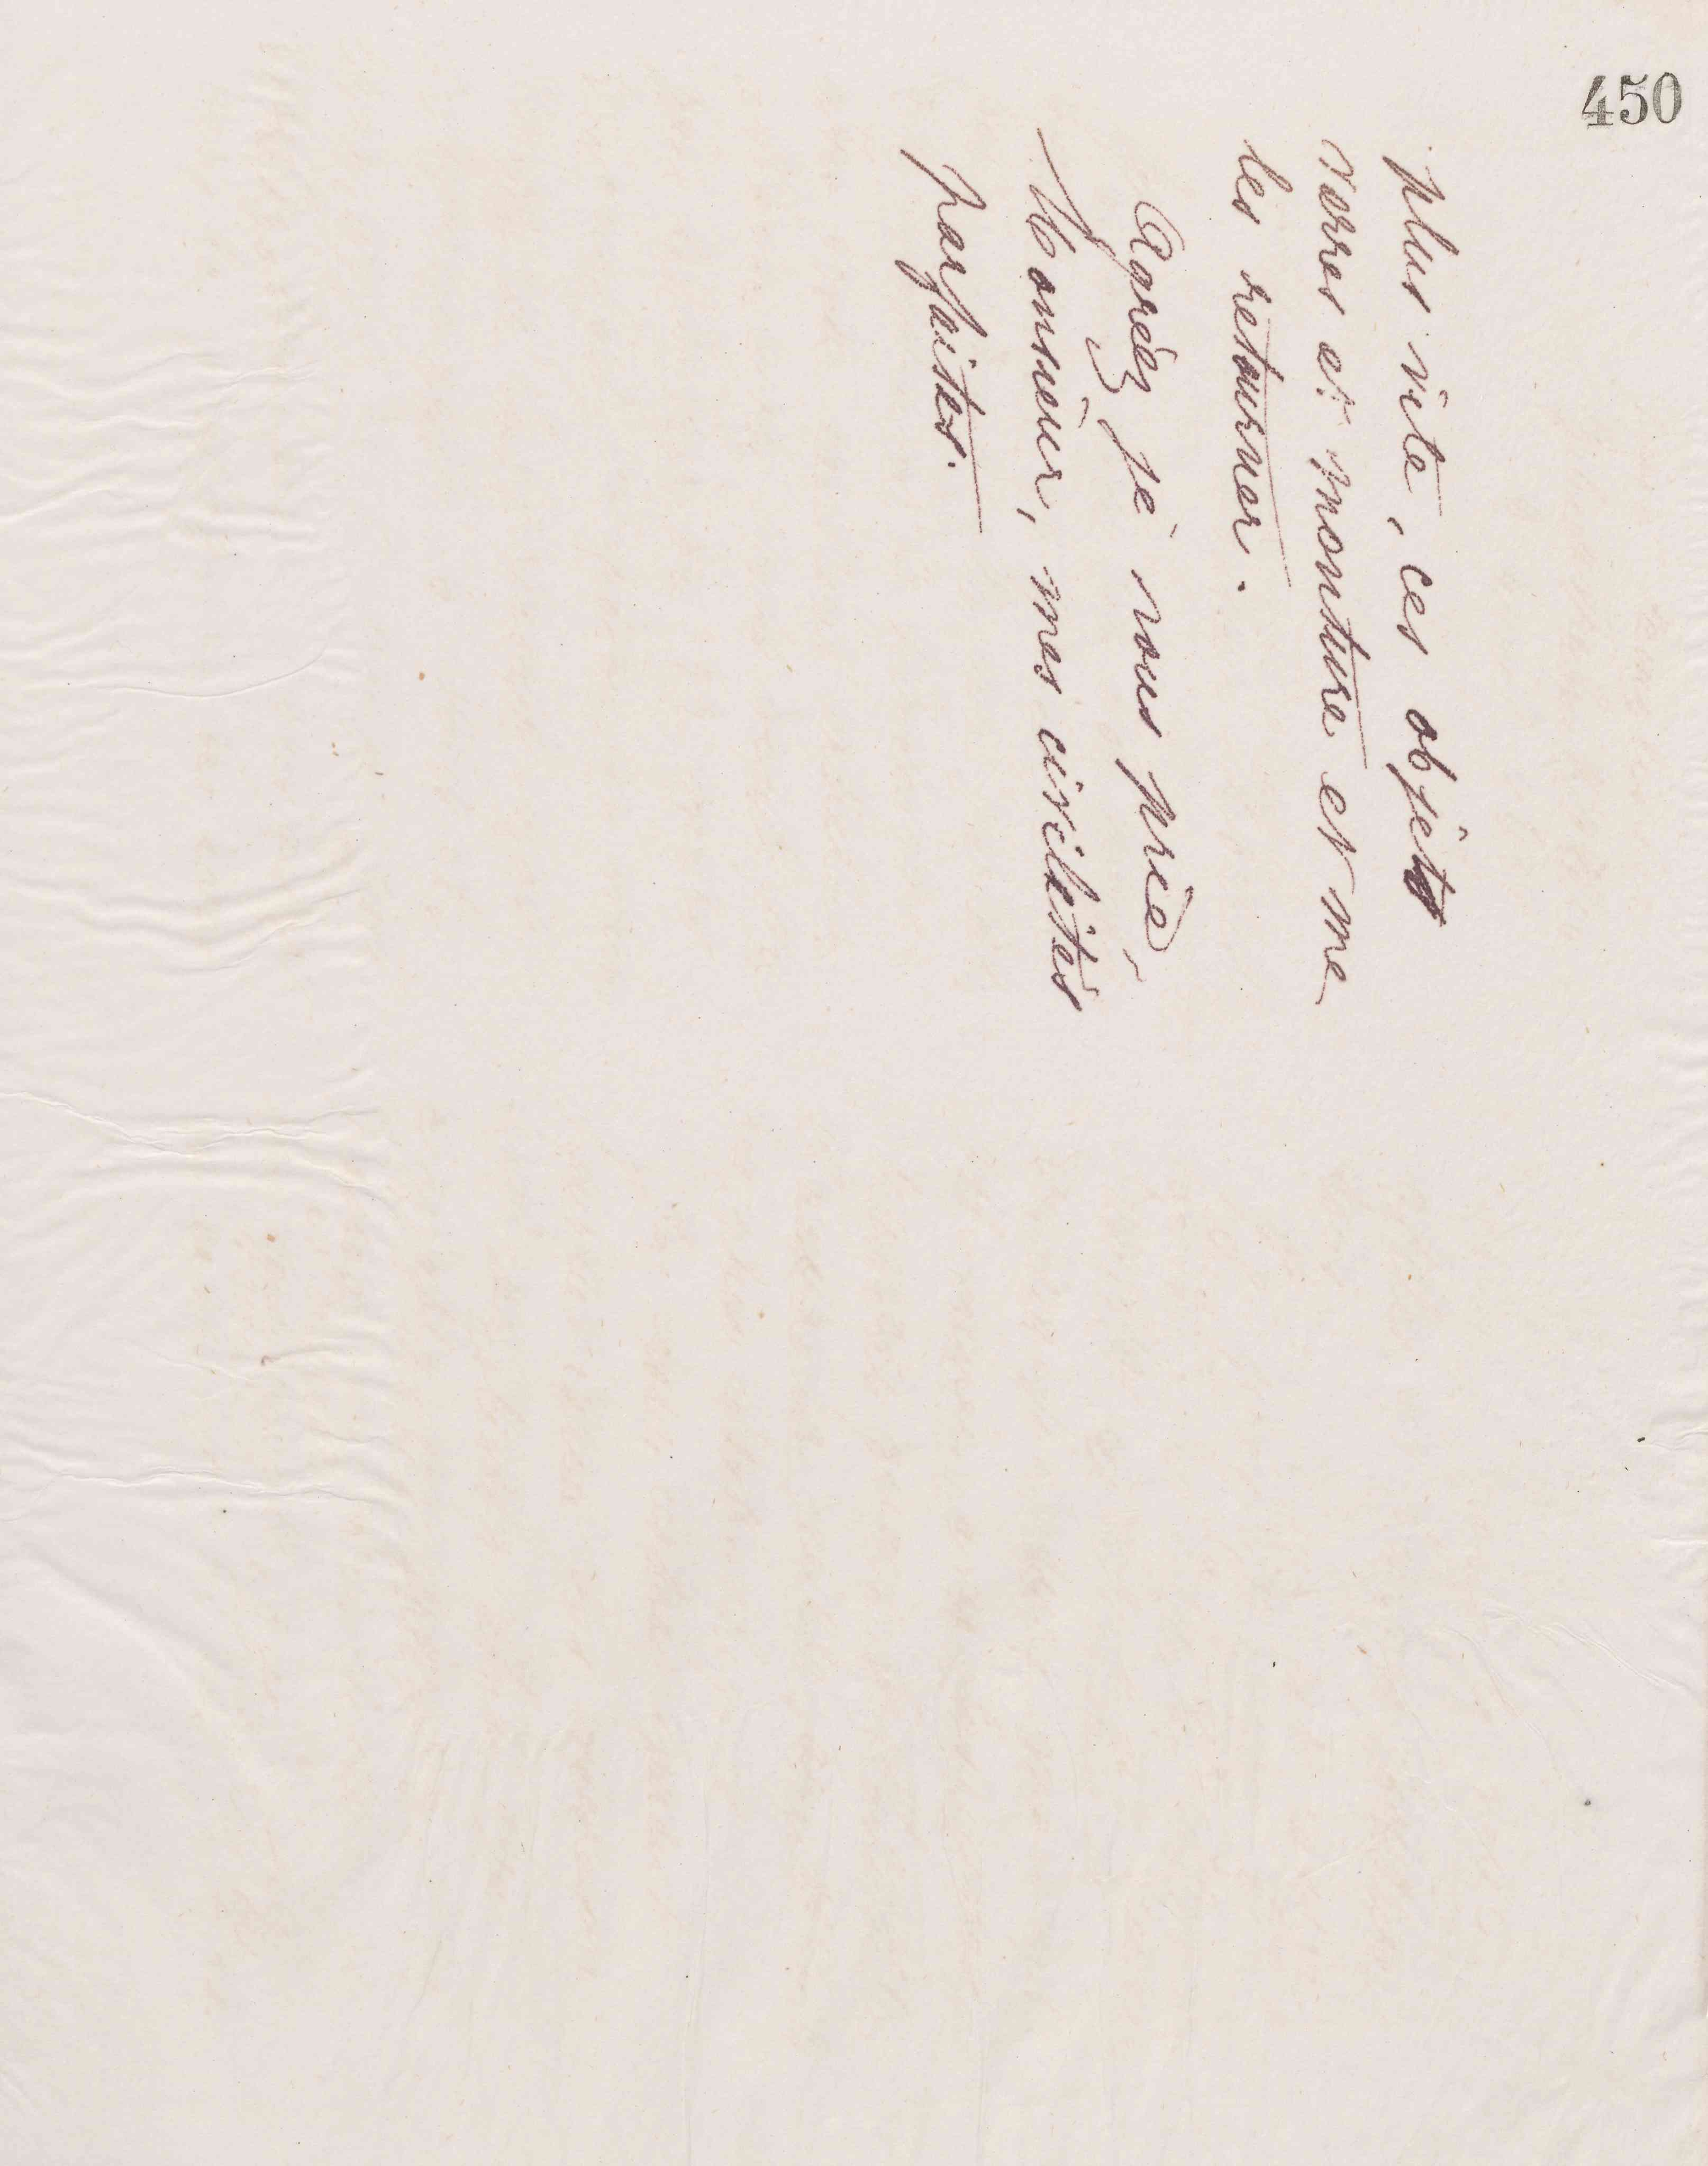 450
plus vite, ces objets
verres et monture et me
les retourner.
Agréez je vous prie,
Monsieur, mes civilités
parfaites.